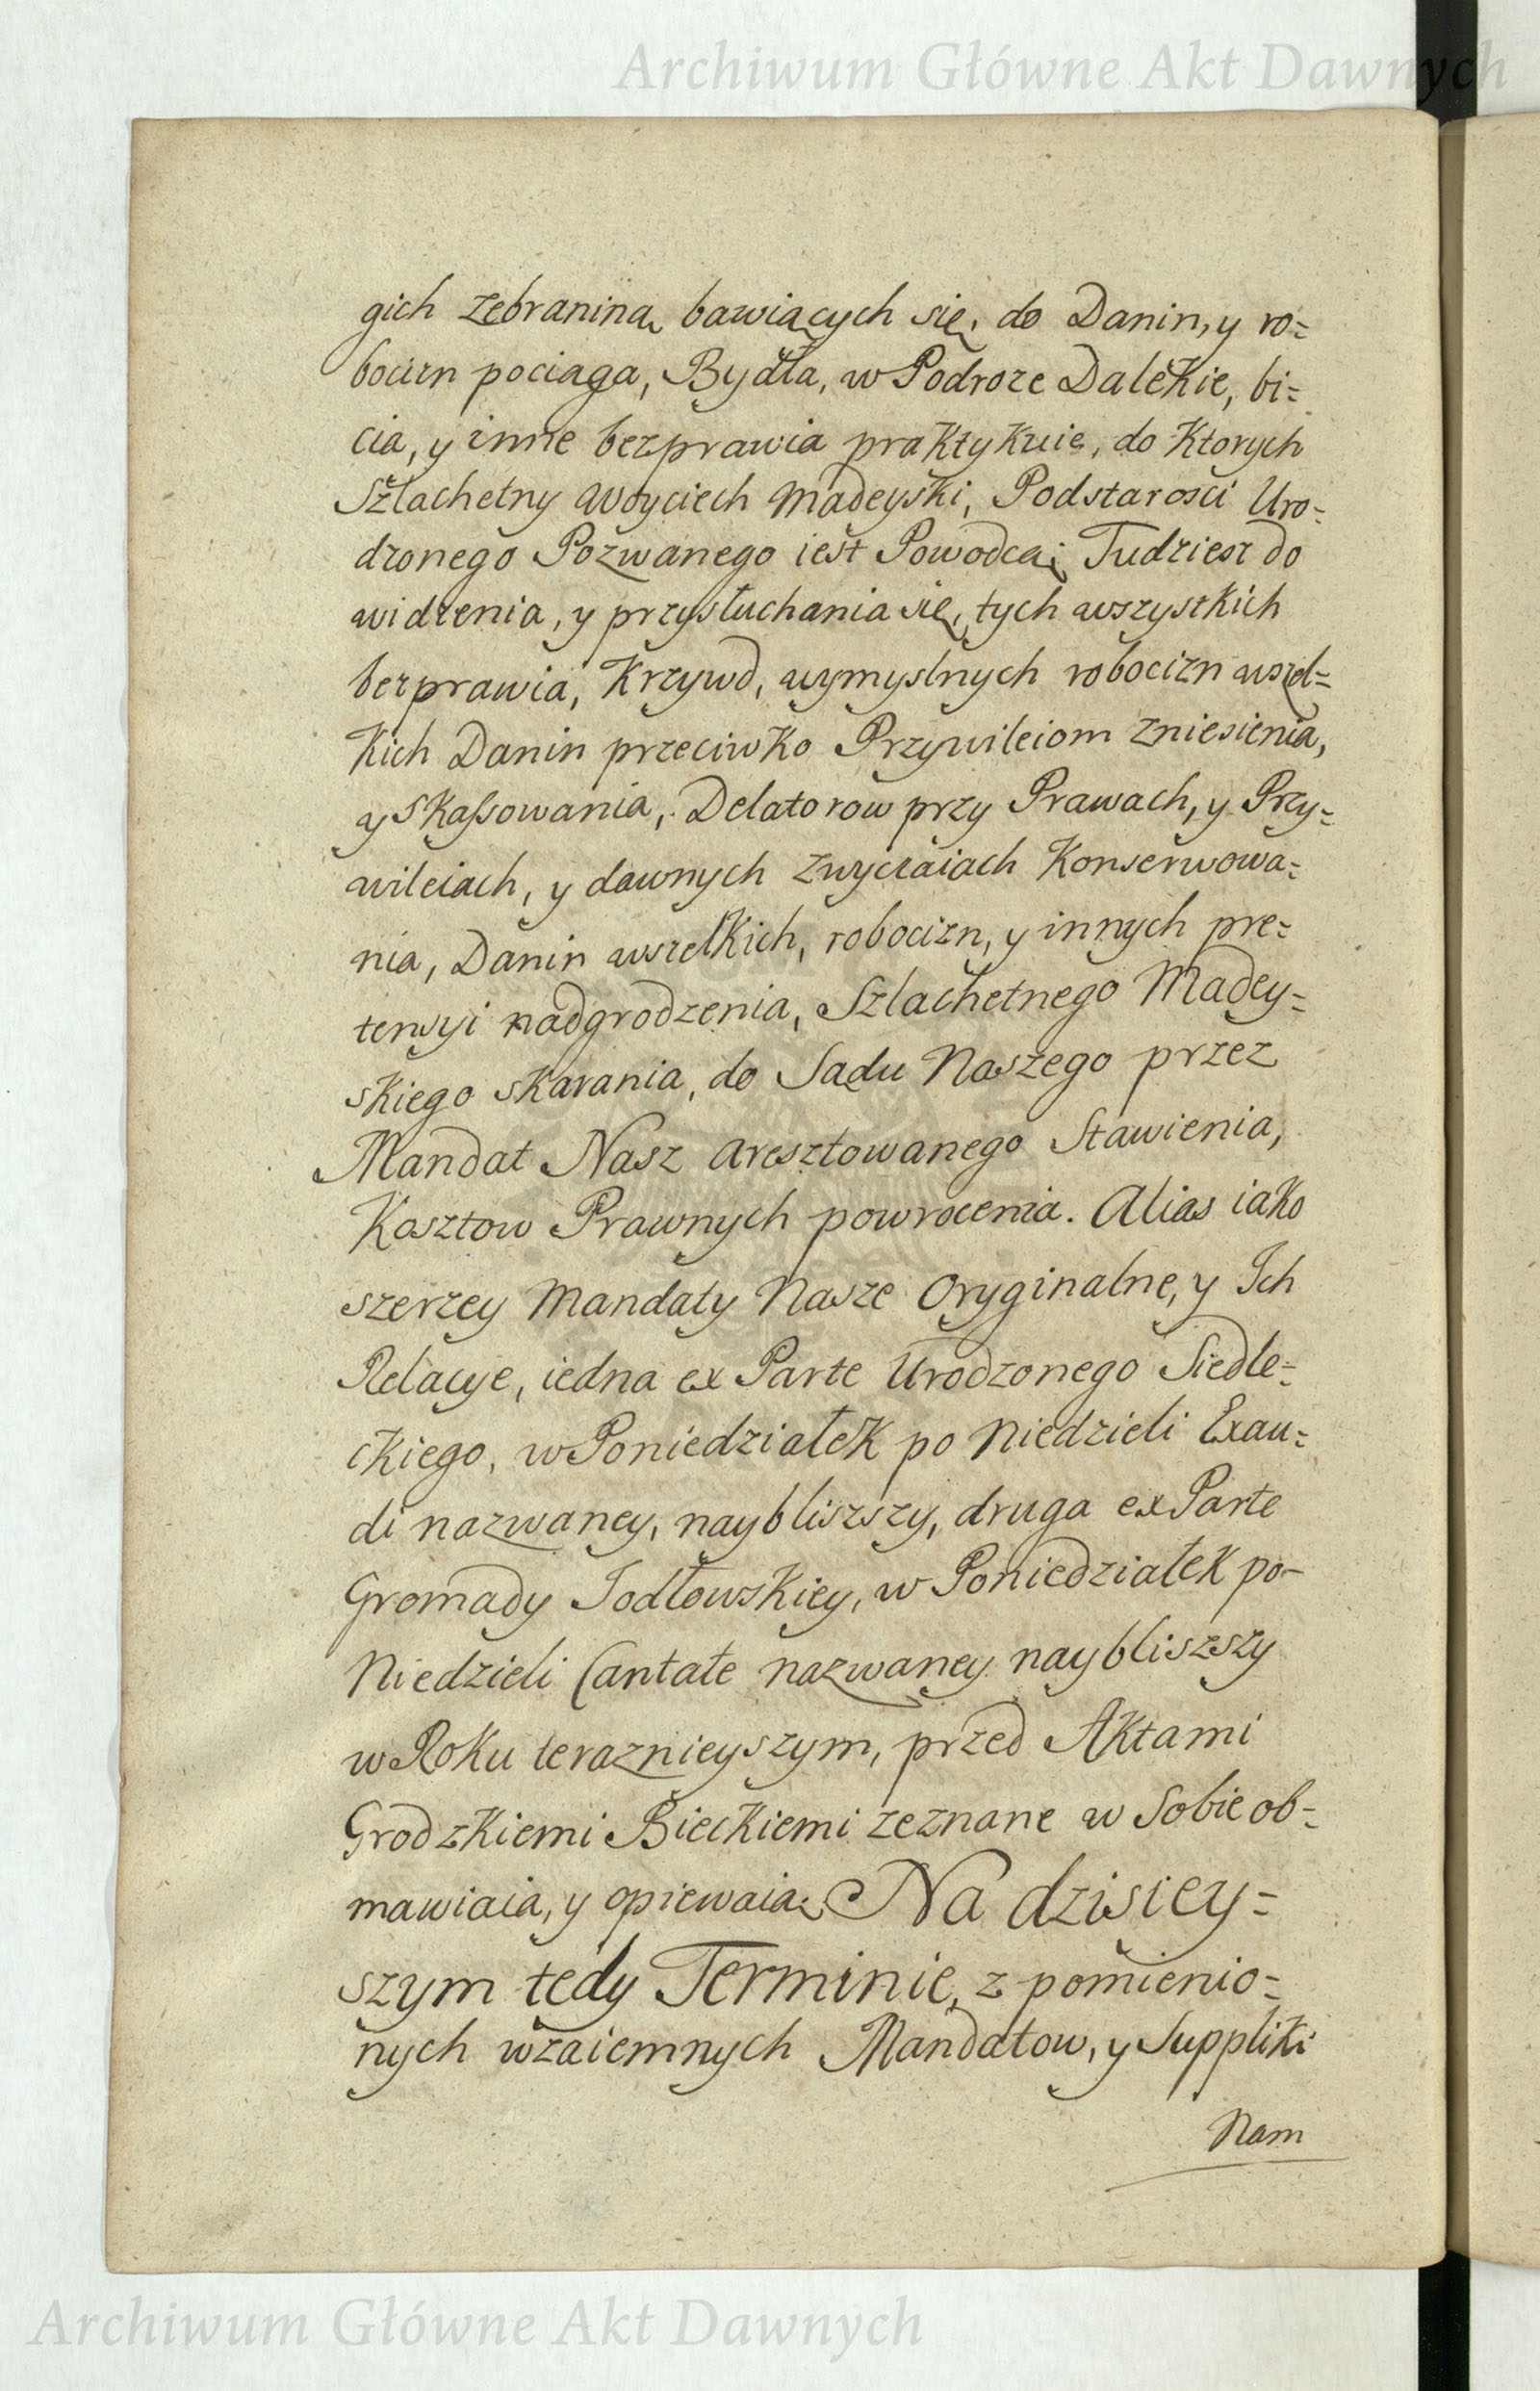 Archiwum Główne Akt Dawnych
gich żebraniną bawiących się, do Danin, y ro=
bocizn pociąga, Bydła, w Podroze Dalekie, bi=
cia, y inne bezprawia praktykuie, do Ktorych
Szlachetny Woyciech Madeyski, Podstarosci Uro=
dzonego Pozwanego iest Powodcą; Tudziesz do
widzenia, y przysłuchania się, tych wszystkich
bezprawia, Krzywd, wymyslnych robocizn wszel=
kich Danin przeciwko Przywileiom zniesienia,
y skassowania, Delatorow przy Prawach, y Przy=
wileiach, y dawnych zwyczaiach Konserwowa=
nia, Danin wszelkich, robocizn, y innych pre=
tensyi nadgrodzenia, Szlachetnego Madey=
skiego skarania, do Sądu Naszego przez
Mandat Nasz aresztowanego Stawienia,
Kosztow Prawnych powrocenia. Alias iako
szerzey Mandaty Nasze Oryginalne, y Ich
Relacye, iedna ex Parte Urodzonego Siedle=
ckiego, w Poniedziałek po Niedzieli Exau=
di nazwaney, naybliszszy, druga ex Parte
Gromady Jodłowskiey, w Poniedziałek po-
Niedzieli Cantate nazwaney naybliszszy
w Roku teraznieyszym, przed Aktami
Grodzkiemi Bieckiemi zeznane w Sobie ob=
mawiaią, y opiewaią. Na dzisiey=
szym tedy Terminie, z pomienio=
nych wzaiemnych Mandatow, y Suppliki
Nam
Archiwum Główne Akt Dawnych